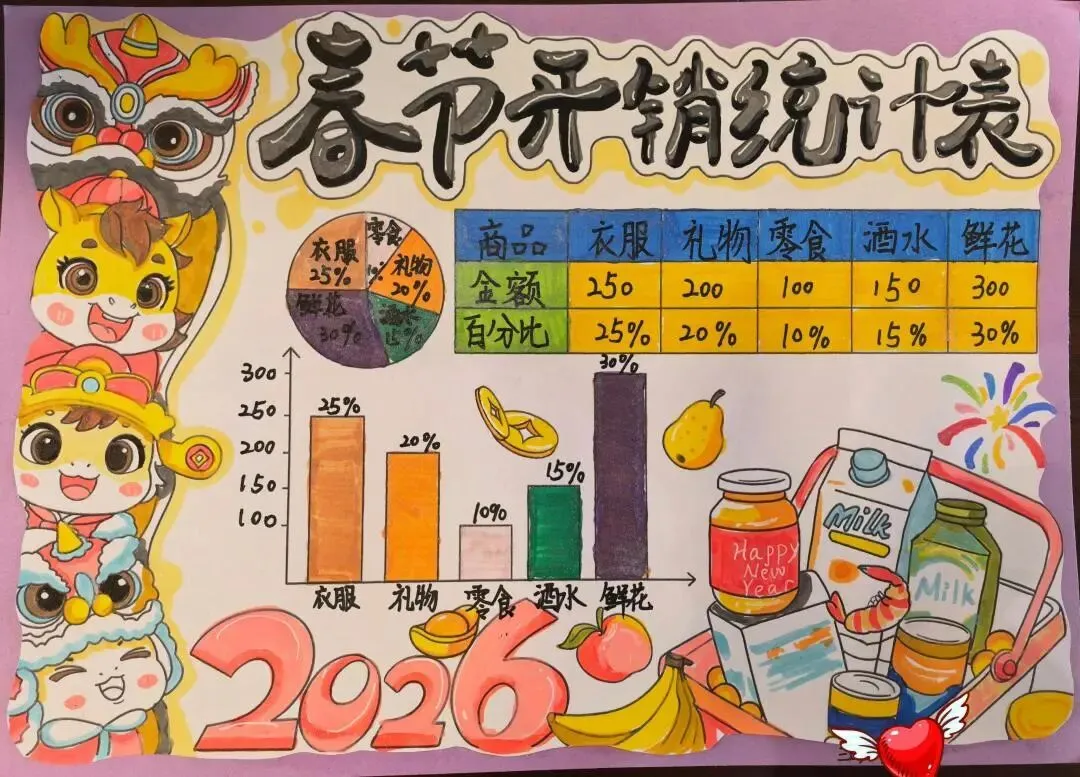 春节开销统计表
衣服 25%
零食 10%
礼物 20%
鲜花 30%
酒水 15%
商品 衣服 礼物 零食 酒水 鲜花
金额 250 200 100 150 300
百分比 25% 20% 10% 15% 30%
300
250
200
150
100
25%
20%
10%
15%
30%
衣服 礼物 零食 酒水 鲜花
2026
Milk
Happy
New
Year
Milk